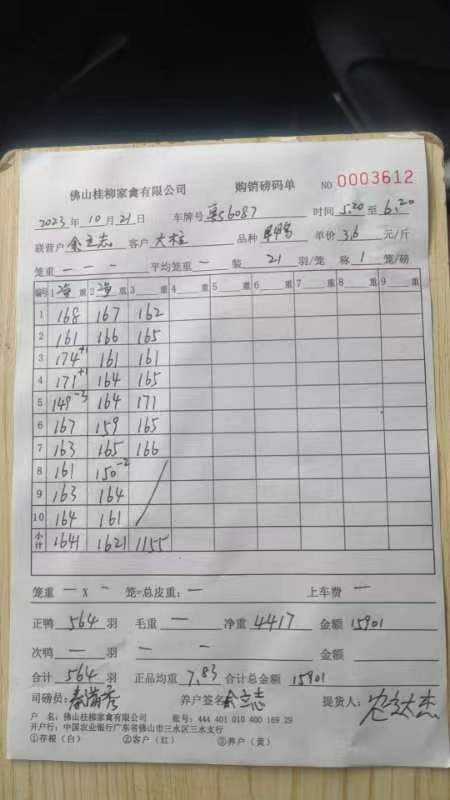 佛山桂柳家禽有限公司 购销磅码单 NO 0003612
2023 年 10 月 21 日 车牌号 粤S6087 时间 5.20 至 6.20
联营户 余立志 客户 大柱 品种 单价 3.6 元/斤
笼重 — — — 平均笼重 — 装 21 羽/笼 称 1 笼/磅
编号 1 净 重 2 净 重 3 重 4 重 5 重 6 重 7 重 8 重 9 重
1 168 167 162
2 161 166 165
3 174+1 161 161
4 171+1 164 165
5 149-3 164 171
6 167 159 165
7 163 165 166
8 161 150-2
9 163 164
10 164 161
小计 1641 1621 1155
笼重 — X — 笼=总皮重: — 上车费 —
正鸭 564 羽 毛重 — 净重 4417 金额 15901
次鸭 — 羽 — — 金额
合计 564 羽 正品均重 7.83 合计总金额 15901
司磅员: 养户签名 余立志 提货人:
户 名: 佛山桂柳家禽有限公司 账号: 444 401 010 400 169 29
开户行: 中国农业银行广东省佛山市三水区三水支行
①存根（白） ②客户（红） ③养户（黄）